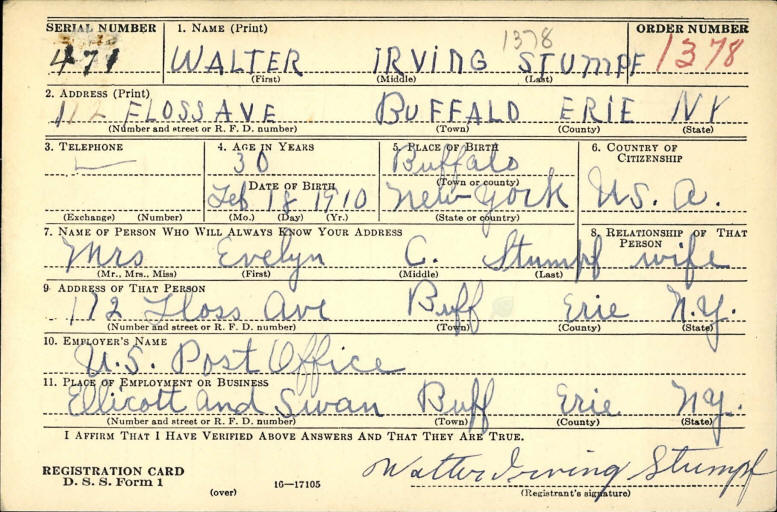 SERIAL NUMBER 1. NAME (Print) ORDER NUMBER
471 WALTER IRVING STUMPF 1378 1378
(First) (Middle) (Last)
2. ADDRESS (Print)
112 FLOSS AVE BUFFALO ERIE NY
(Number and street or R. F. D. number) (Town) (County) (State)
3. TELEPHONE 4. AGE IN YEARS 5. PLACE OF BIRTH 6. COUNTRY OF CITIZENSHIP
30 Buffalo
DATE OF BIRTH (Town or county)
Feb 18 1910 New York U.S.A.
(Exchange) (Number) (Mo.) (Day) (Yr.) (State or country)
7. NAME OF PERSON WHO WILL ALWAYS KNOW YOUR ADDRESS 8. RELATIONSHIP OF THAT PERSON
Mrs Evelyn C. Stumpf wife
(Mr., Mrs., Miss) (First) (Middle) (Last)
9 ADDRESS OF THAT PERSON
112 Floss Ave Buff Erie N.Y.
(Number and street or R. F. D. number) (Town) (County) (State)
10. EMPLOYER'S NAME
U.S. Post Office
11. PLACE OF EMPLOYMENT OR BUSINESS
Ellicott and Swan Buff Erie NY.
(Number and street or R. F. D. number) (Town) (County) (State)
I AFFIRM THAT I HAVE VERIFIED ABOVE ANSWERS AND THAT THEY ARE TRUE.
REGISTRATION CARD Walter Irving Stumpf
D. S. S. Form 1 (over) 16—17105 (Registrant's signature)